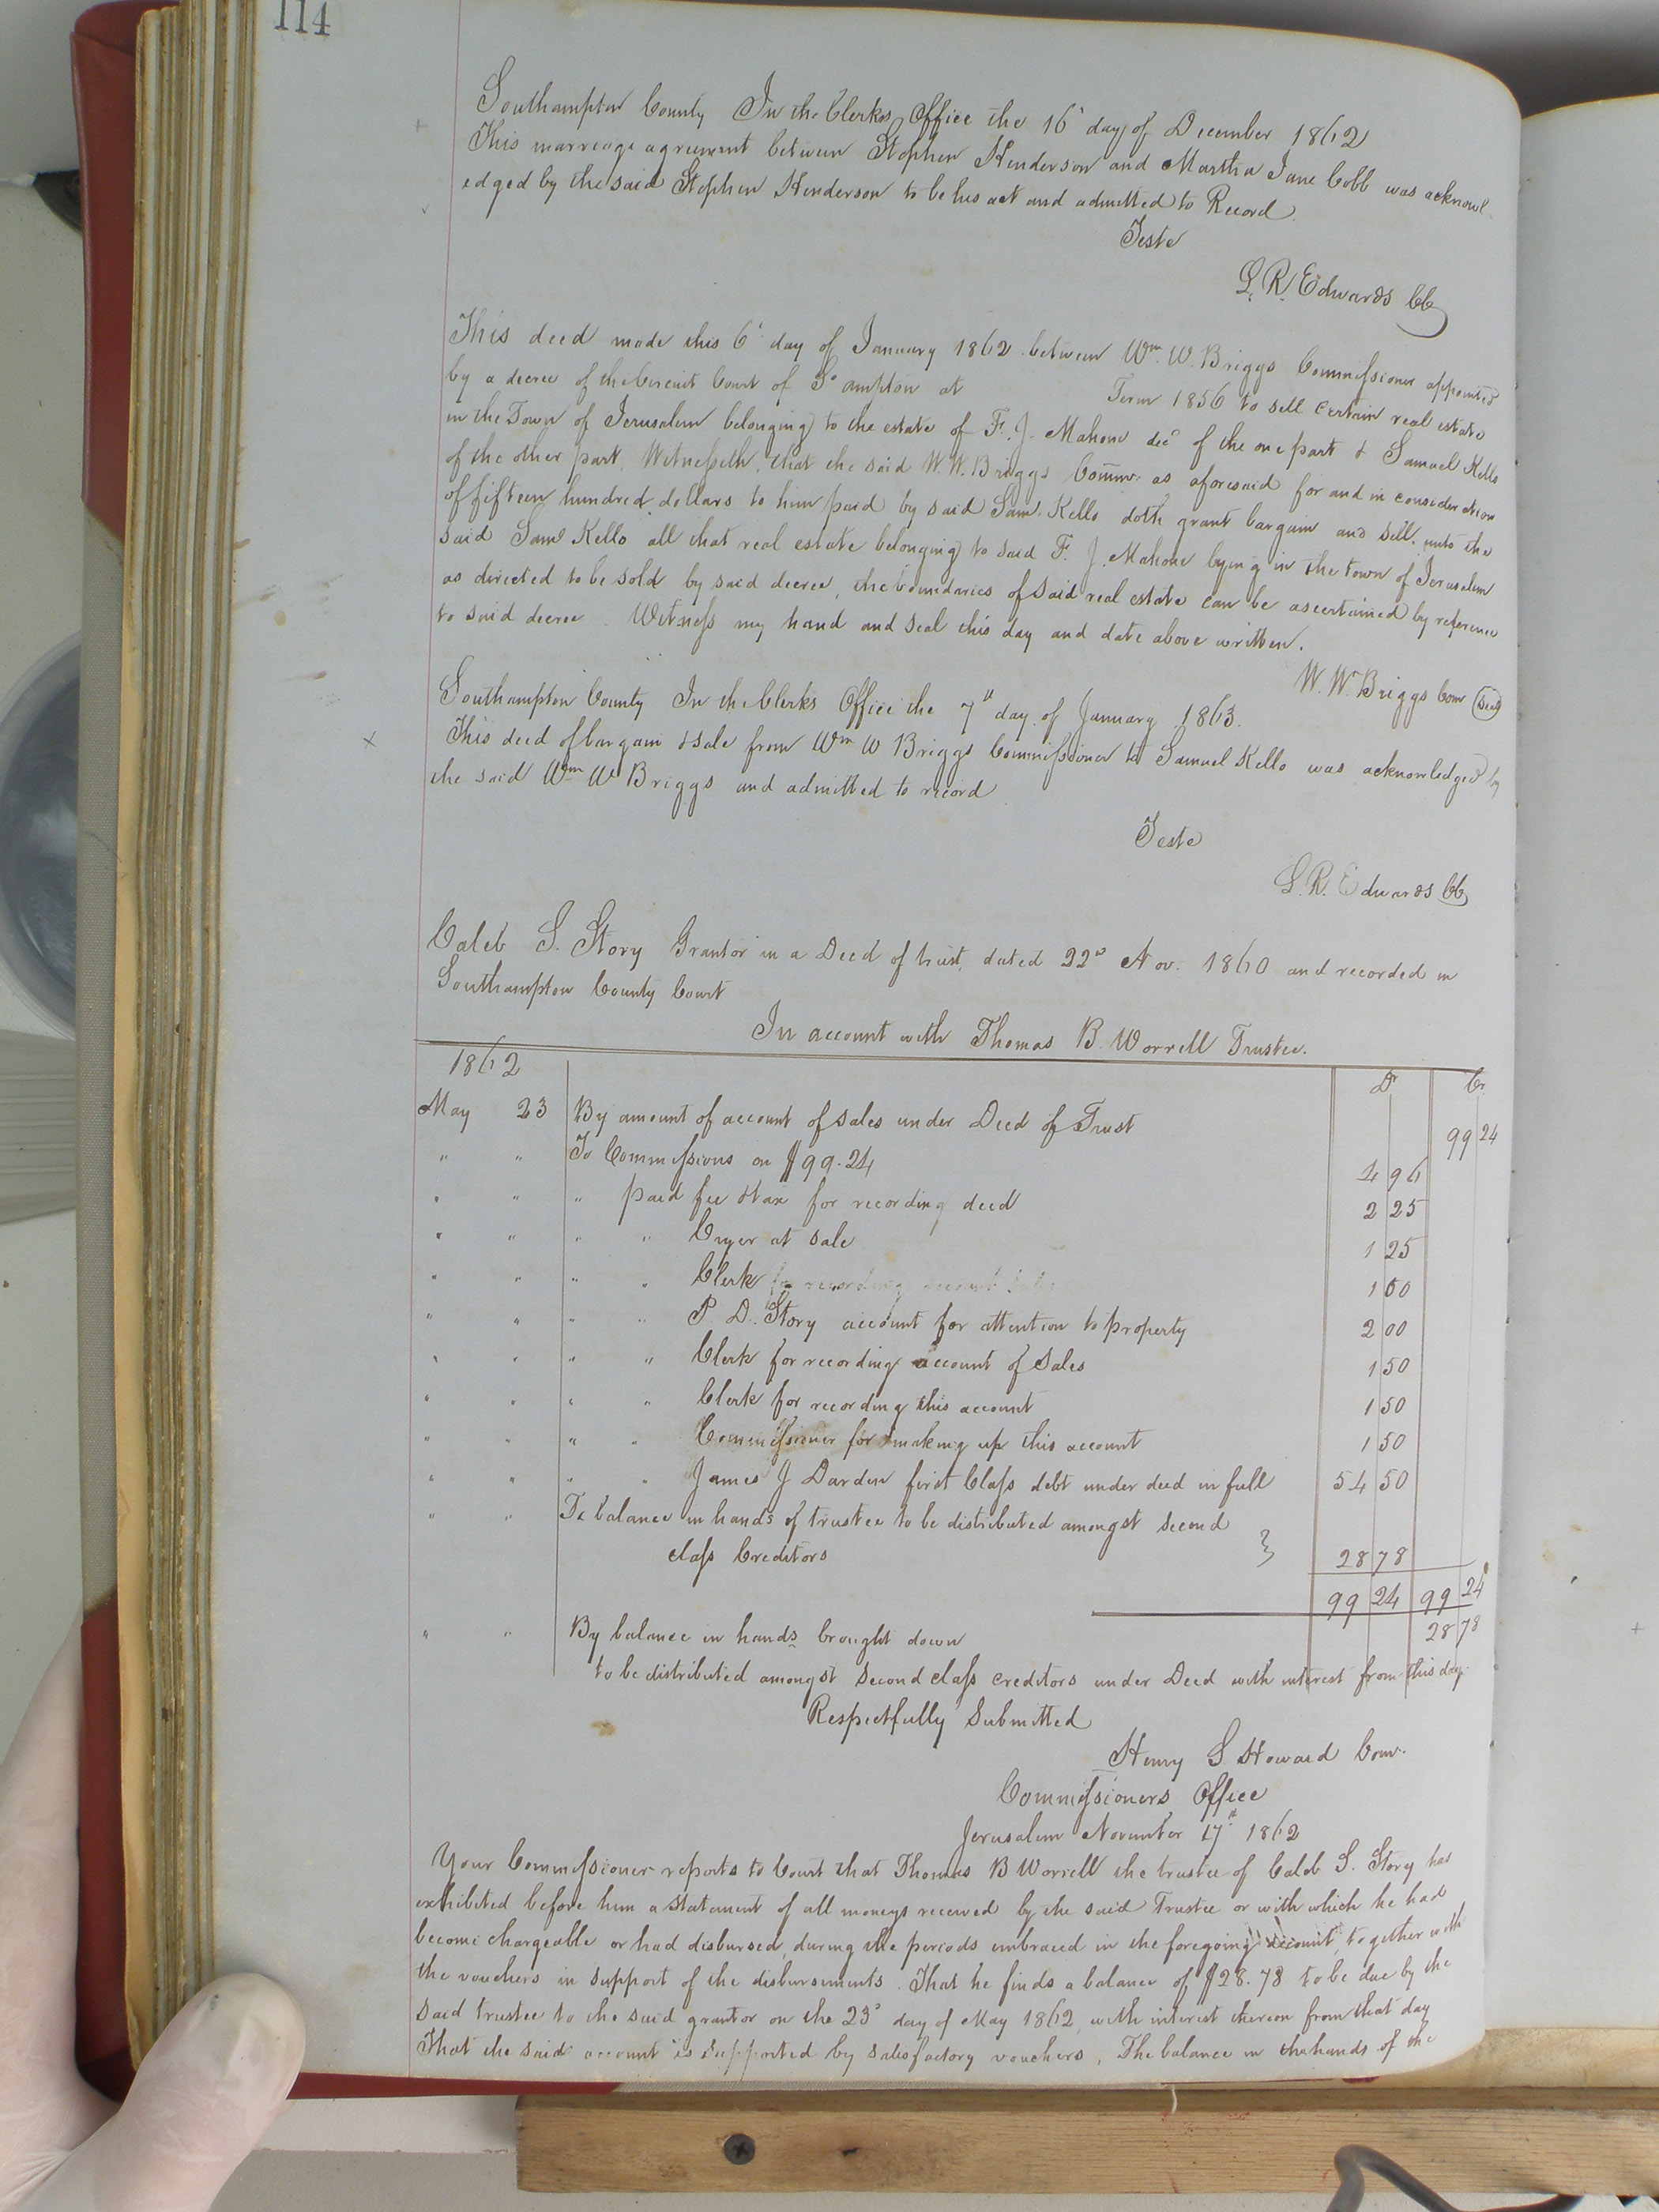 114
Southampton County In the Clerks Office the 16' day of December 1862
This marreage agreement between Stephen Henderson and Martha Jane Cobb was acknowl
edged by the said Stephen Henderson to be his act and admitted to Record.
Teste
L. R. Edwards CC
This deed made this 6' day of January 1862 between Wm. W. Briggs Commissioner appointed
by a decree of the Circuit Court of So ampton at Term 1856 to sell certain real estate
in the Town of Jerusalem belonging to the estate of F. J. Mahone decd of the one part & Samuel Kello
of the other part, Witnesseth, that the said W. W. Briggs Commr. as aforesaid for and in consideration
of fifteen hundred dollars to him paid by said Saml. Kello doth grant bargain and sell unto the
said Saml Kello all that real estate belonging to said F. J. Mahone lying in the town of Jerusalem
as directed to be sold by said decree, the boundaries of said real estate can be ascertained by reference
to said decree. Witness my hand and seal this day and date above written.
W. W. Briggs Com Seal
Southampton County In the Clerks Office the 7th day of January 1863.
This deed of bargain & sale from Wm W Briggs Commissioner to Samuel Kello was acknowledged by
the said Wm W Briggs and admitted to record
Teste
L. R. Edwards CC
Caleb S. Story Grantor in a Deed of trust, dated 22d Nov. 1860 and recorded in
Southampton County Court
In account with Thomas B. Worrell Trustee.
1862 Dr Cr.
May 23 By amount of account of sales under Deed of Trust 99 24
" " To Commissions on $99.24 4 96
" " " paid fee & tax for recording deed 2 25
" " " " Cryer at sale 1 25
" " " " Clerk 1 00
" " " " P. D. Story account for attention to property 2 00
" " " " Clerk for recording account of sales 1 50
" " " " Clerk for recording this account 1 50
" " " " Commissioner for making up this account 1 50
" " " " James J Darden first Class debt under deed in full 54 50
" " To balance in hands of trustee to be distributed amongst second
class Creditors } 28 78
99 24 99 24
" " By balance in hands brought down 28 78
to be distributed amongst second class creditors under Deed with interest from this day.
Respectfully Submitted
Henry S Howard Com.
Commissioners Office
Jerusalem November 17th 1862
Your Commissioner reports to Court that Thomas B Worrell the trustee of Caleb S. Story has
exhibited before him a statement of all moneys received by the said Trustee or with which he had
become chargeable or had disbursed, during the periods embraced in the foregoing account, together with
the vouchers in support of the disbursements. That he finds a balance of $28.78 to be due by the
said trustee to the said grantor on the 23d day of May 1862, with interest thereon from that day
That the said account is supported by satisfactory vouchers. The balance in the hands of the